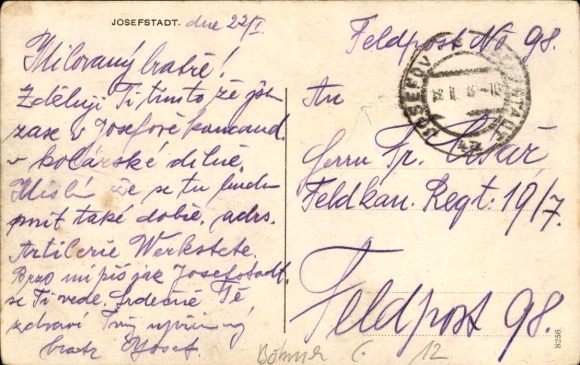 JOSEFSTADT. dne 22/I
Milovaný bratře!
Zděluji Ti, tímto, že jsem
zase v Josefově komand.
v kolářské dílně.
Myslím že se tu budu
mít také dobře. adrs.
Artilerie Werkstete
Brzo mi piš jak Josefstadt.
se Ti vede. Srdečně Tě
zdraví Tvůj upřímný
bratr Josef.
Feldpost No 98.
An
Herrn Fr. Císař
Feldkan. Regt. 19/7.
Feldpost 98.
JOSEFOV
Böhmen C. 12
8256